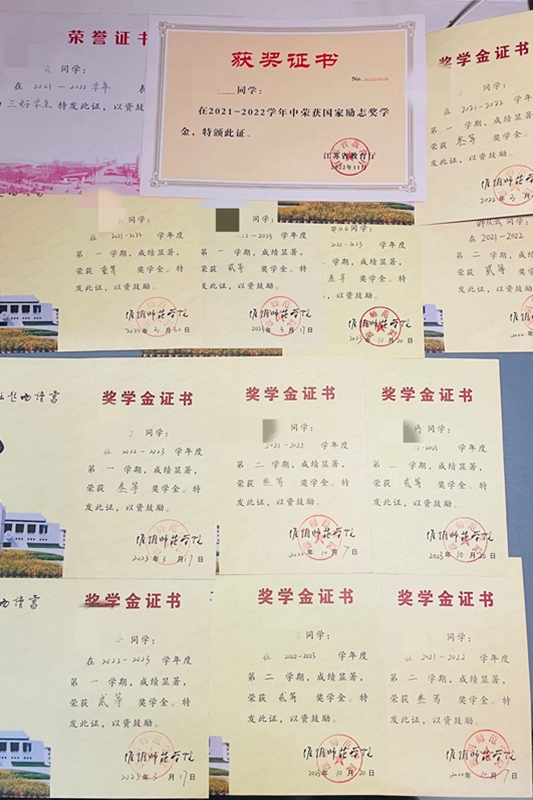 荣誉证书
同学：
在 2021-2022 学年
三好学生 特发此证，以资鼓
获奖证书
No.
同学：
在2021-2022学年中荣获国家励志奖学
金，特颁此证。
江苏省教育厅
2022年11月
奖学金证书
同学：
在 2021-2022
第 一 学期，成绩显
荣获 叁等 奖学金
发此证，以资鼓励。
淮阴师范学院
2022年3月
同学：
在 2021-2022 学年度
第 一 学期，成绩显著，
荣获 壹等 奖学金。特
发此证，以资鼓励。
淮阴师范学院
年3月20日
同学：
-2023 学年度
第 一 学期，成绩显著，
荣获 贰等 奖学金。特
发此证，以资鼓励。
淮阴师范学院
2023年3月17日
同学：
2022-2023 学年度
学期，成绩显著，
叁等 奖学金。特
发此证，以资鼓励。
淮阴师范学院
2023年10月20日
同学：
在 2021-2022
第 二 学期，成绩
荣获 贰等 奖学金
发此证，以资鼓励
淮阴师范
奖学金证书
同学：
在 2022-2023 学年度
第 一 学期，成绩显著，
荣获 叁等 奖学金。特
发此证，以资鼓励。
淮阴师范学院
2023年3月17日
奖学金证书
同学：
2021-2022 学年度
第 二 学期，成绩显著，
荣获 叁等 奖学金。特
发此证，以资鼓励。
淮阴师范学院
2022年10月7日
奖学金证书
同学：
-2023 学年度
第 二 学期，成绩显著，
荣获 贰等 奖学金。特
发此证，以资鼓励。
淮阴师范学院
2023年10月20日
奖学金证书
同学：
在 2022-2023 学年度
第 一 学期，成绩显著，
荣获 贰等 奖学金。特
发此证，以资鼓励。
淮阴师范学院
2023年3月17日
奖学金证书
同学：
在 2022-2023 学年度
第 二 学期，成绩显著，
荣获 贰等 奖学金。特
发此证，以资鼓励。
淮阴师范学院
2023年10月20日
奖学金证书
同学：
在 2021-2022 学年度
第 二 学期，成绩显著，
荣获 叁等 奖学金。特
发此证，以资鼓励。
淮阴师范学院
2022年10月7日